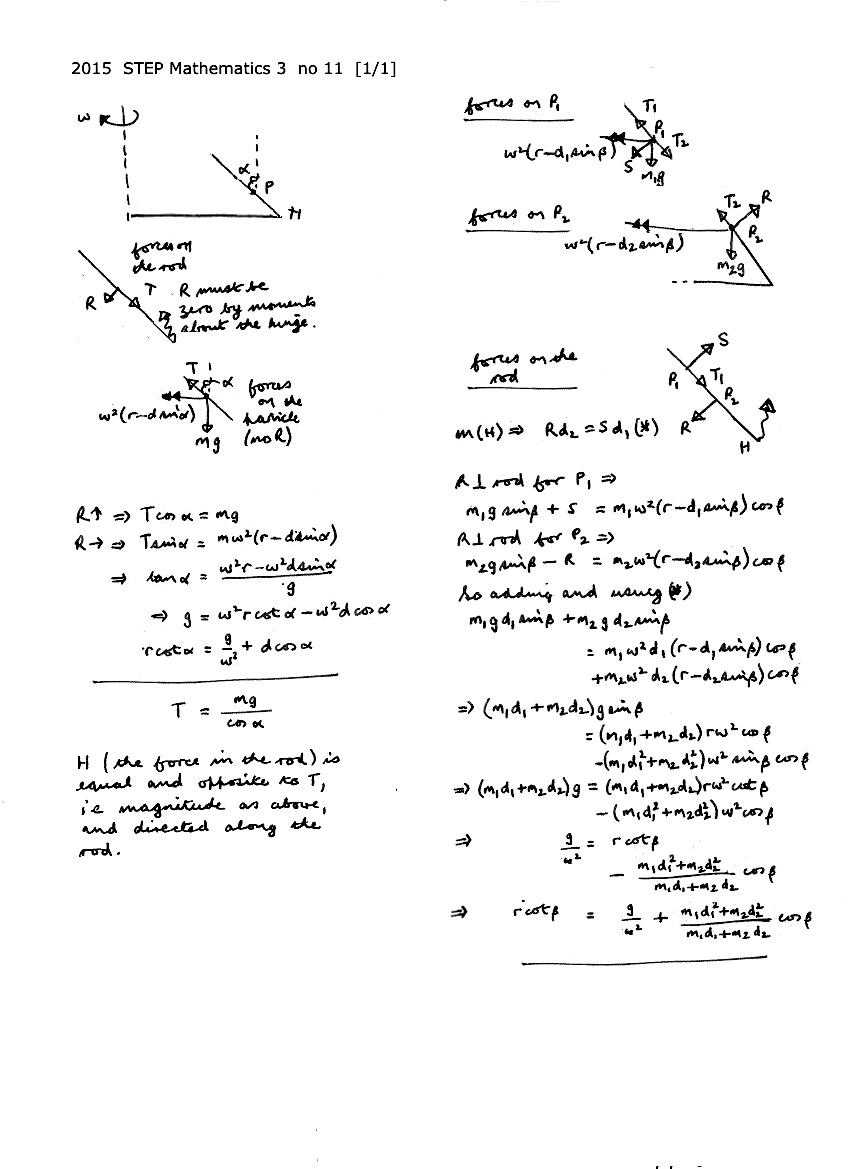 2015 STEP Mathematics 3 no 11 [1/1]
ω
α
P
H
forces on
the rod
R T R must be
zero by moments
about the hinge.
T α forces
on the
particle
(no R)
ω²(r-d sinα)
mg
R↑ ⇒ Tcosα = mg
R→ ⇒ Tsinα = mω²(r-dsinα)
⇒ tanα = (ω²r-ω²dsinα)/g
⇒ g = ω²rcotα-ω²dcosα
rcotα = g/ω² + dcosα
T = mg/cosα
H (the force in the rod) is
equal and opposite to T,
i.e magnitude as above,
and directed along the
rod.
forces on P₁
T₁
P₁
T₂
ω²(r-d₁sinβ)
S
m₁g
forces on P₂
T₂ R
P₂
ω²(r-d₂sinβ)
m₂g
forces on the
rod
S
P₁ T₁
P₂
R
H
m(H) ⇒ Rd₂ = Sd₁ (*)
R⊥ rod for P₁ ⇒
m₁g sinβ + S = m₁ω²(r-d₁sinβ)cosβ
R⊥ rod for P₂ ⇒
m₂g sinβ - R = m₂ω²(r-d₂sinβ)cosβ
So adding and using (*)
m₁gd₁sinβ + m₂gd₂sinβ
= m₁ω²d₁(r-d₁sinβ)cosβ
+m₂ω²d₂(r-d₂sinβ)cosβ
⇒ (m₁d₁+m₂d₂)g sinβ
= (m₁d₁+m₂d₂)rω²cosβ
-(m₁d₁²+m₂d₂²)ω² sinβ cosβ
⇒ (m₁d₁+m₂d₂)g = (m₁d₁+m₂d₂)rω²cotβ
-(m₁d₁²+m₂d₂²)ω²cosβ
⇒ g/ω² = rcotβ
- (m₁d₁²+m₂d₂²)/(m₁d₁+m₂d₂) cosβ
⇒ rcotβ = g/ω² + (m₁d₁²+m₂d₂²)/(m₁d₁+m₂d₂) cosβ